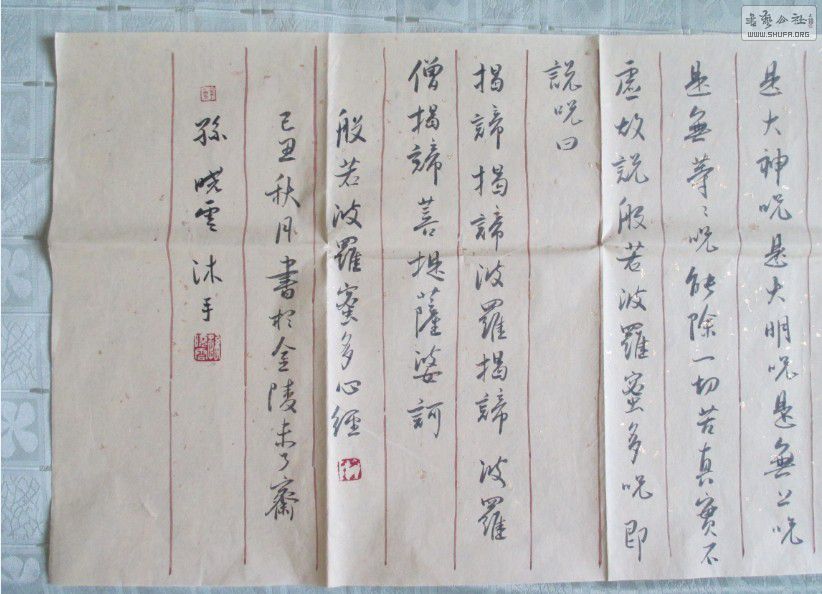 是大神咒是大明咒是無上咒
是無等〻咒能除一切苦真實不
虛故說般若波羅蜜多咒即
說咒曰
揭諦揭諦波羅揭諦波羅
僧揭諦菩提薩婆訶
般若波羅蜜多心經
己丑秋月書於金陵未了齋
孫曉雲沐手
書藝公社
WWW.SHUFA.ORG